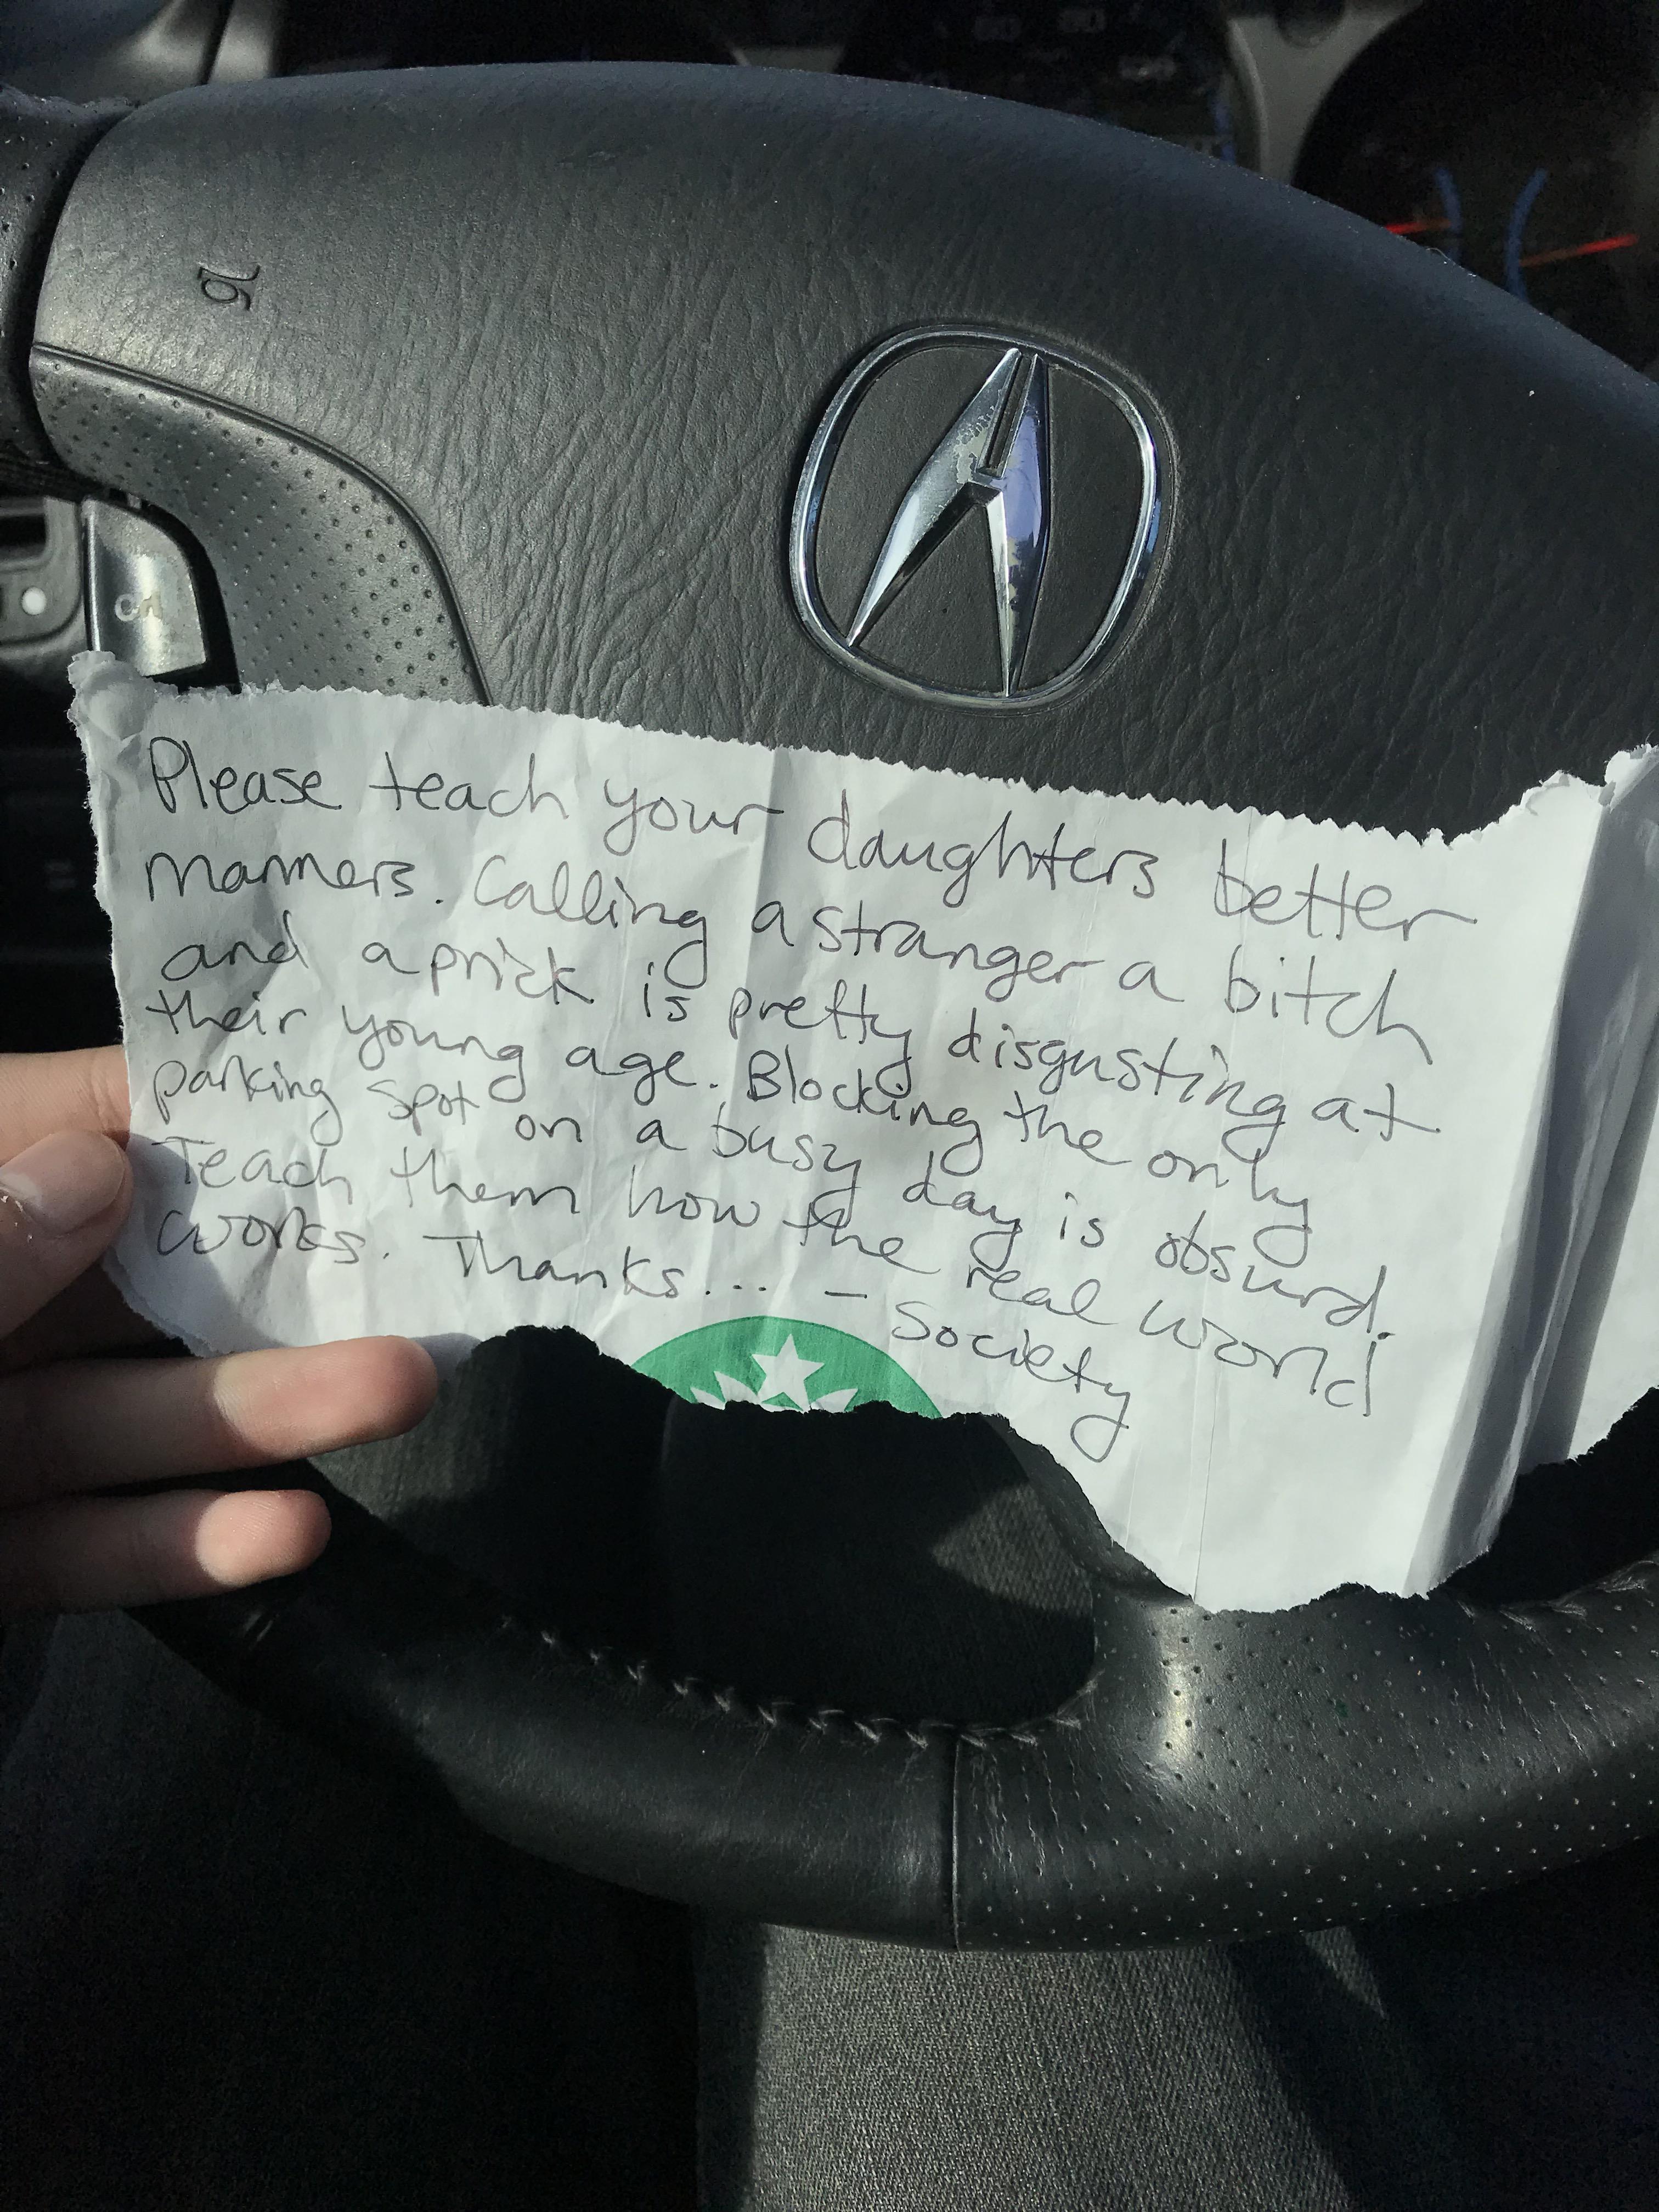 Please teach your daughters better
manners. Calling a stranger a bitch
and a prick is pretty disgusting at
their young age. Blocking the only
parking spot on a busy day is absurd.
Teach them how the real world
works. Thanks... – Society